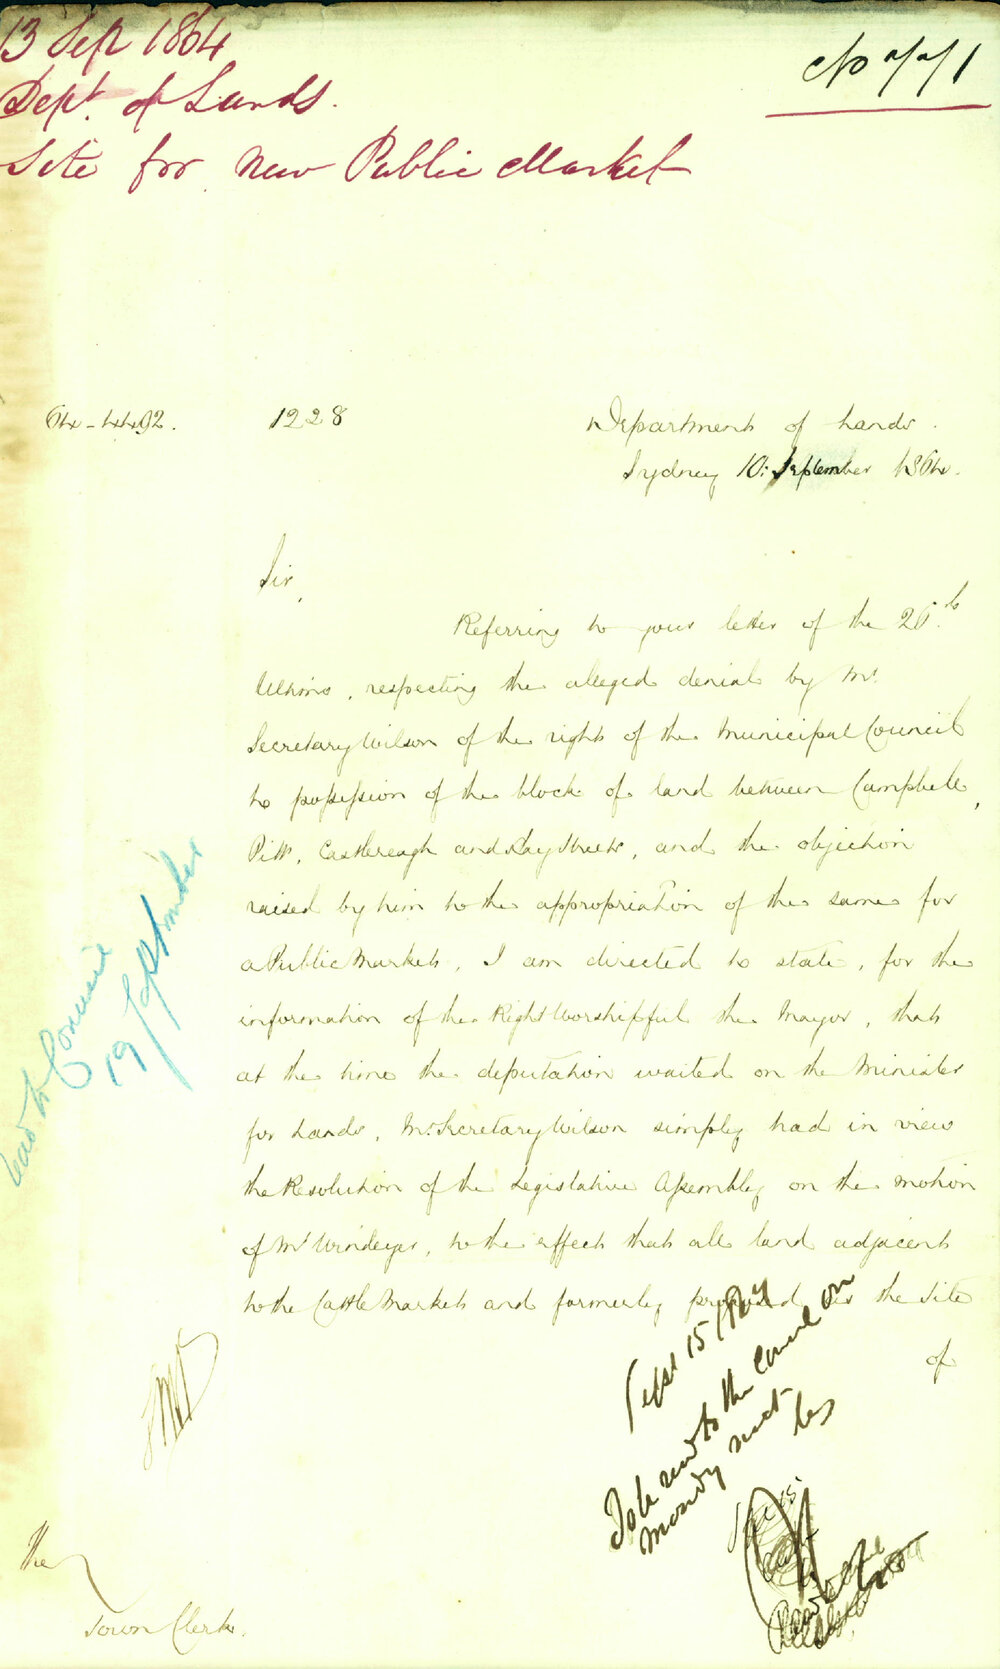 13 Sep 1864
Dept. of Lands.
Site for New Public Market
No 771
64-4492.
1228
Department of Lands.
Sydney 10: September 1864.
Sir,
Referring to your letter of the 26th
Ultimo, respecting the alleged denial by Mr.
Secretary Wilson of the right of the Municipal Council
to possession of the block of land between Campbell,
Pitt, Castlereagh and Hay Streets, and the objection
raised by him to the appropriation of the same for
a Public Market, I am directed to state, for the
information of the Right Worshipful the Mayor, that
at the time the deputation waited on the Minister
for Lands, Mr. Secretary Wilson simply had in view
the Resolution of the Legislative Assembly on the motion
of Mr Windeyer, to the effect that all land adjacent
to the Cattle Market and formerly proposed as the site
of
The
Town Clerk.
Read to Council
19 September
Sept 15
To be read to the Council on
Monday next